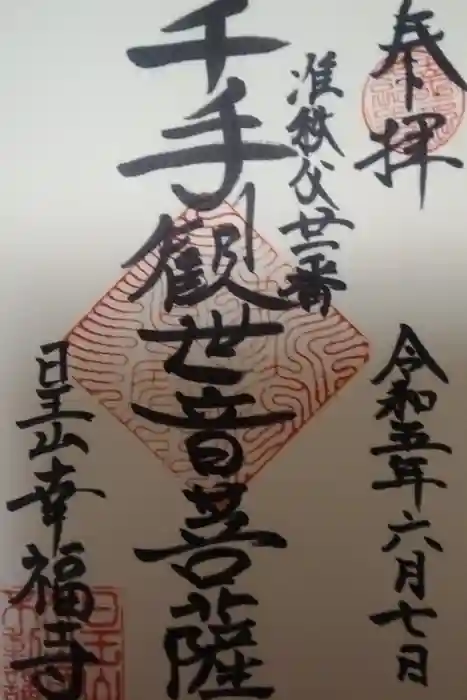 奉拝
令和五年六月七日
准秩父廿一番
千手観世音菩薩
日王山幸福寺